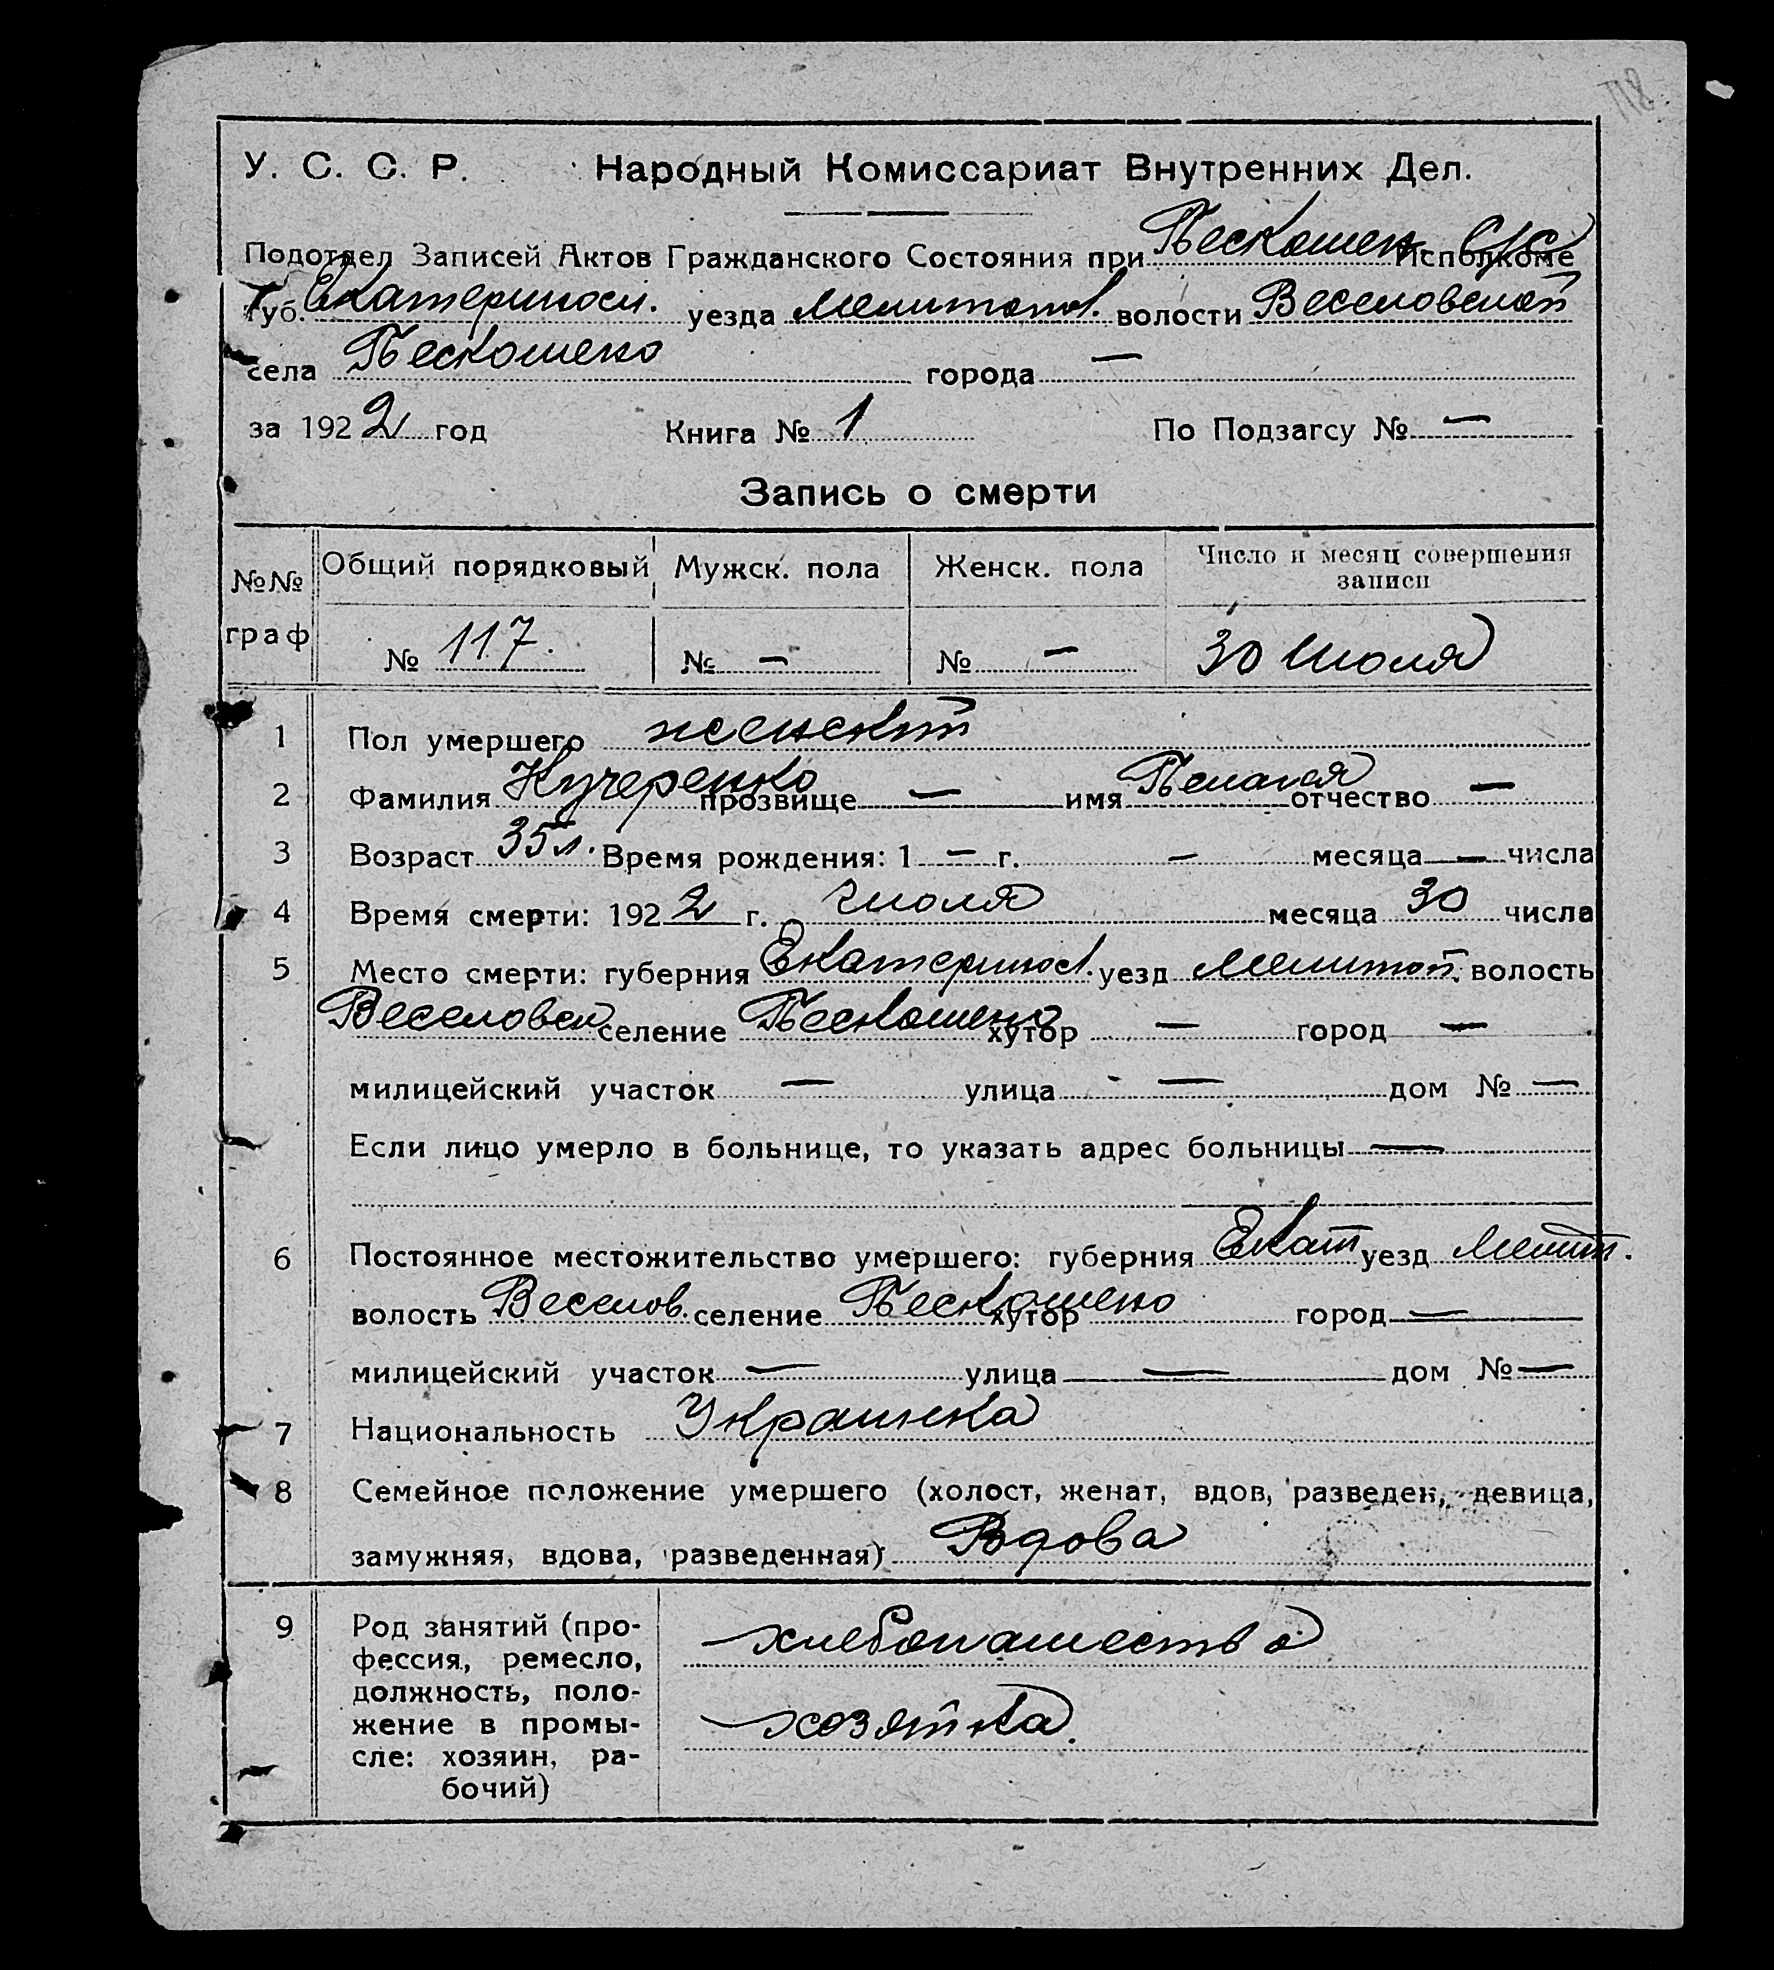 У. С. С. Р. Народный Комиссариат Внутренних Дел.
Подотдел Записей Актов Гражданского Состояния при Пескошен с/с Исполкоме
Губ. Екатериносл. уезда Мелитопол. волости Веселовской
села Пескошено города —
за 1922 год Книга № 1 По Подзагсу № —
Запись о смерти
№№ граф Общий порядковый Мужск. пола Женск. пола Число и месяц совершения записи
№ 117. № — № — 30 Июля
1 Пол умершего женский
2 Фамилия Кучеренко прозвище — имя Пелагея отчество —
3 Возраст 35 л. Время рождения: 1 — г. — месяца — числа
4 Время смерти: 1922 г. Июля месяца 30 числа
5 Место смерти: губерния Екатеринос. уезд Мелитоп. волость
Веселовск селение Пескошено хутор — город —
милицейский участок — улица — дом № —
Если лицо умерло в больнице, то указать адрес больницы —
6 Постоянное местожительство умершего: губерния Екат уезд Мелит.
волость Веселов. селение Пескошено хутор город —
милицейский участок — улица — дом № —
7 Национальность Украинка
8 Семейное положение умершего (холост, женат, вдов, разведен, девица,
замужняя, вдова, разведенная) Вдова
9 Род занятий (про-
фессия, ремесло,
должность, поло-
жение в промы-
сле: хозяин, ра-
бочий)
хлебопашество
хозяйка.